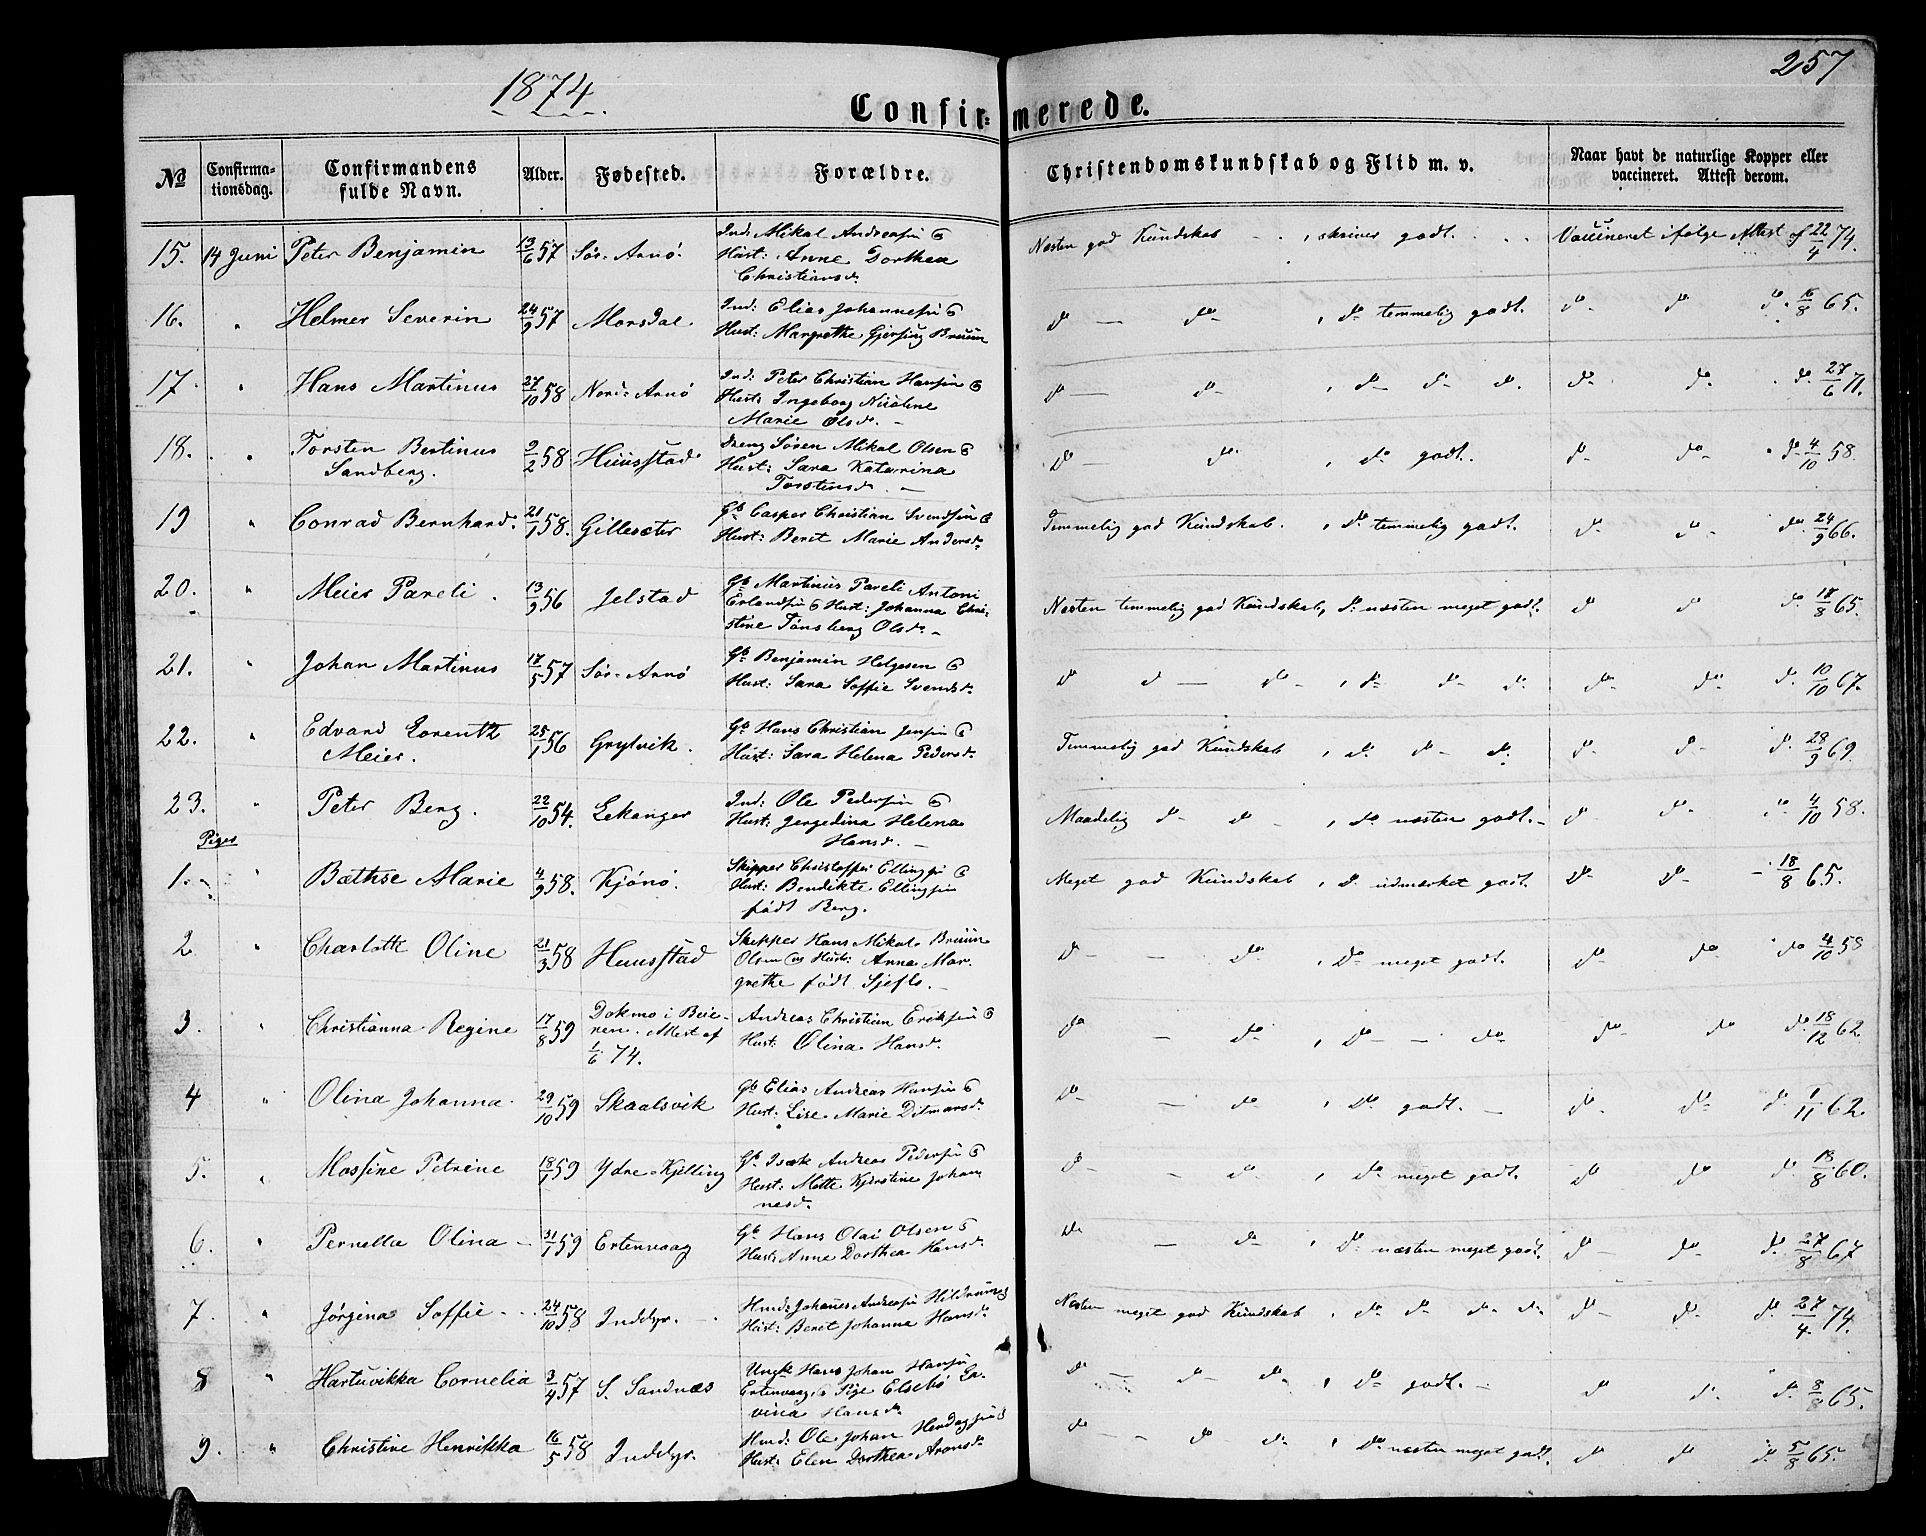 1874
257
Confir= merede.
No
Confirma-
tionsdag.
Confirmandens
fulde Navn.
Alder.
Fødested.
Forældre.
Christendomskundskab og Flid m. v.
Naar havt de naturlige Kopper eller
vaccineret. Attest derom.
15. 14 Juni Peter Benjamin 13/6 57 Sør-Arnø Ind: Mikal Andreasen &
Hust: Anne Dorthea
Christiansd.
Næsten god Kundskab, skriver godt. Vaccineret ifølge Attest af 22/4 74.
16. " Helmer Severin 24/9 57 Morsdal. Ind: Elias Johannesen &
Hust: Margrethe Gjersing Bruun
do — do , do temmelig godt. do do do 16/8 65.
17. " Hans Martinus 27/10 58 Nord-Arnø Ind: Peter Christian Hansen &
Hust: Ingeborg Nicoline
Marie Olsd.
do — do , do do do. do do do 27/6 71.
18. " Torsten Bertinus
Sandberg. 2/2 58 Huusstad Dreng Søren Mikal Olsen &
Hust: Sara Katarina
Torstensd.
do — do , do godt. do do do 4/10 58.
19 " Conrad Bernhard. 21/1 58. Gillesæter Gb. Casper Christian Svendsen &
Hust: Beret Marie Andersd.
Temmelig god Kundskab. , do temmelig godt. do do do 24/9 66.
20. " Meier Pareli. 13/9 56 Jelstad Gb. Martinus Pareli Antoni
Erlandsen & Hust: Johanna Chri-
stine Tønsberg Olsd.
Næsten temmelig god Kundskab, do næsten meget godt. do do do 18/8 65.
21. " Johan Martinus 17/5 57 Sør-Arnø Gb. Benjamin Helgesen &
Hust: Sara Soffie Svendsd.
do do — do , do do do do do do 10/10 67.
22. " Edvard Lorentz
Meier. 25/1 56 Grytvik. Gb. Hans Christian Jensen &
Hust: Sara Helena Pedersd.
Temmelig god Kundskab , do do do. do do do 28/9 69.
23. " Peter Berg. 22/10 54. Lekanger Ind: Ole Pedersen &
Hust: Jergedina Helena
Hansd.
Maadelig do do , do næsten godt. do do do 4/10 58.
Piger
1. " Bæthse Marie 4/9 58. Kjønø. Skipper Christoffer Ellingsen &
Hust: Bendikte Ellingsen
født Berg.
Meget god Kundskab , do udmærket godt. do do 18/8 65.
2 " Charlotte Oline 21/3 58 Huusstad Skipper Hans Mikal Bruun
Olsen og Hust: Anna Mar-
grethe født
do — do , do meget godt. do do do 4/10 58
3. " Christianna Regine 17/8 59 Dokmo i Beie-
ren. Attest af
1/6 74. Andreas Christian Eriksen &
Hust: Olina Hansd.
do — do , do — do do do do 18/12 62
4 " Olina Johanna. 29/10 59 Skaalsvik Gb. Elias Andreas Hansen &
Hust: Lise Marie Ditmarsd.
do — do , do godt. do do do 1/11 62
5. " Massine Petrine 18/1 59 Ydre-Kjelling Gb. Isak Andreas Pedersen &
Hust: Mette Kjerstine Johan
nesd.
do — do , do meget godt. do do do 18/8 60.
6. " Pernella Olina 31/1 59 Ertenvaag Gb. Hans Olai Olsen &
Hust: Anne Dorthea Hansd.
do — do , do næsten meget godt. do do do 27/8 67
7. " Jørgina Soffie 24/10 58 Inddyr. Hmd: Johanes Andreasen
Hust: Beret Johanna Hansd.
Næsten meget god Kundskab , do do do do do do do 27/4 74.
8 " Hartuvikka Cornelia 3/4 57 S. Sandnæs Ungk. Hans Johan Hansen
Ertenvaag & Pige Elsebø La-
vina Hansd.
do — do do , do godt. do do do 8/8 65.
9. " Christine Henrikka 16/5 58 Inddyr. Hmd: Ole Johan Hendagsen &
Hust: Elen Dorthea Aronsd.
do — do do , do næsten meget godt. do do do 5/8 65.